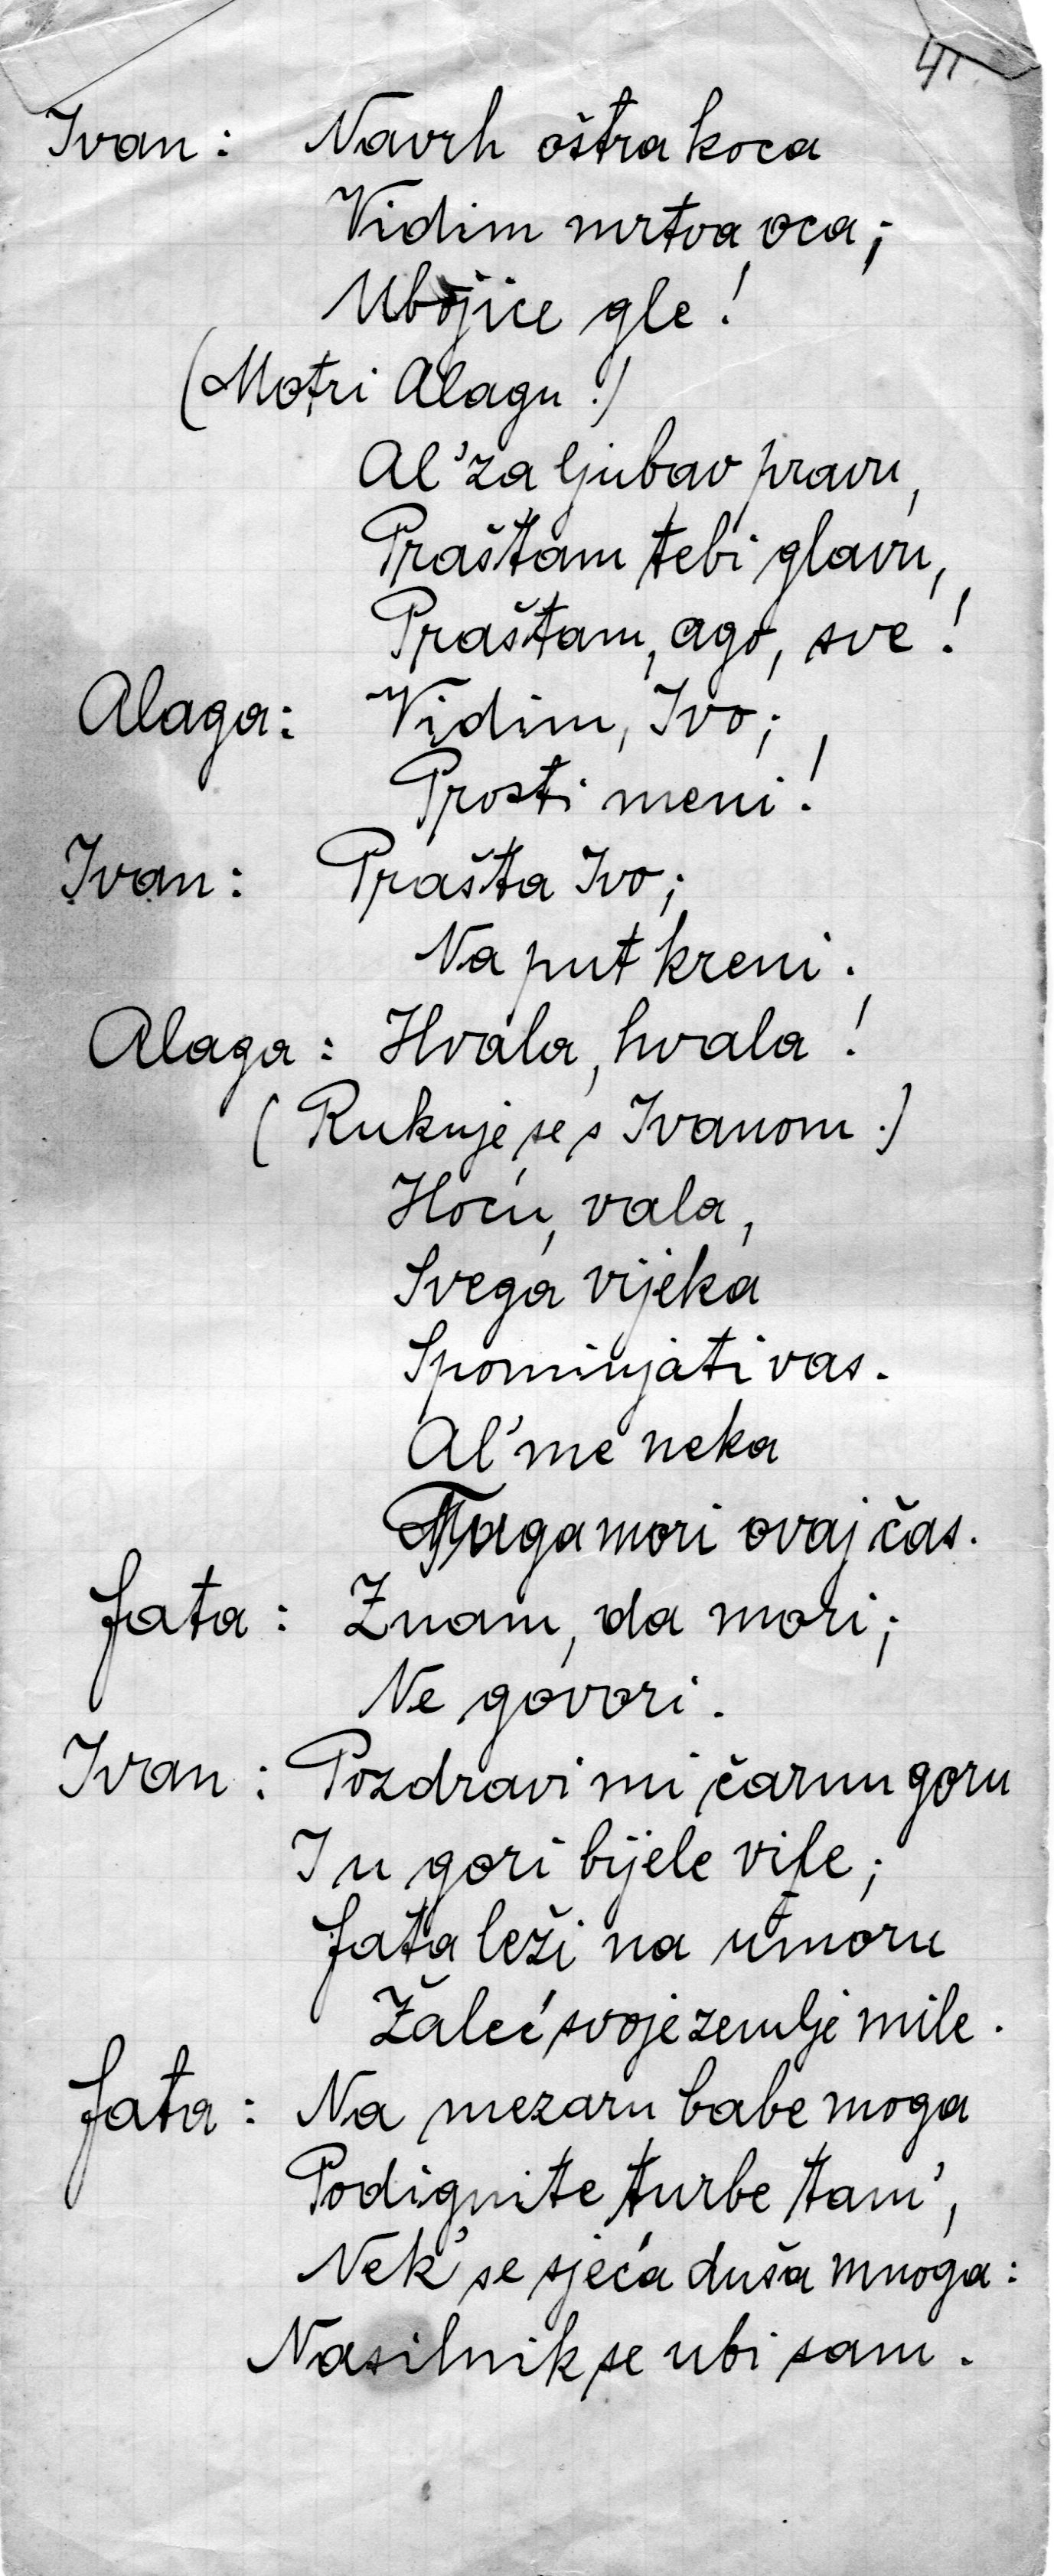 41.
Ivan: Navrh oštra koca
Vidim mrtva oca;
Ubojice gle!
(Motri Alagu.)
Al' za ljubav pravu,
Praštam tebi glavu,
Praštam, ago, sve!
Alaga: Vidim, Ivo;
Prosti meni!
Ivan: Prašta Ivo;
Na put kreni.
Alaga: Hvala, hvala!
(Rukuje se s Ivanom.)
Hoću, vala,
Svega vijeka
Spominjati vas.
Al' me neka
Tuga mori ovaj čas.
Fata: Znam, da mori;
Ne govori.
Ivan: Pozdravi mi čarnu goru
I u gori bijele vile;
Fata leži na umoru
Žaleć svoje zemlje mile.
Fata: Na mezaru babe moga
Podignite turbe tam',
Nek' se sjeća duša mnoga:
Nasilnik se ubi sam.